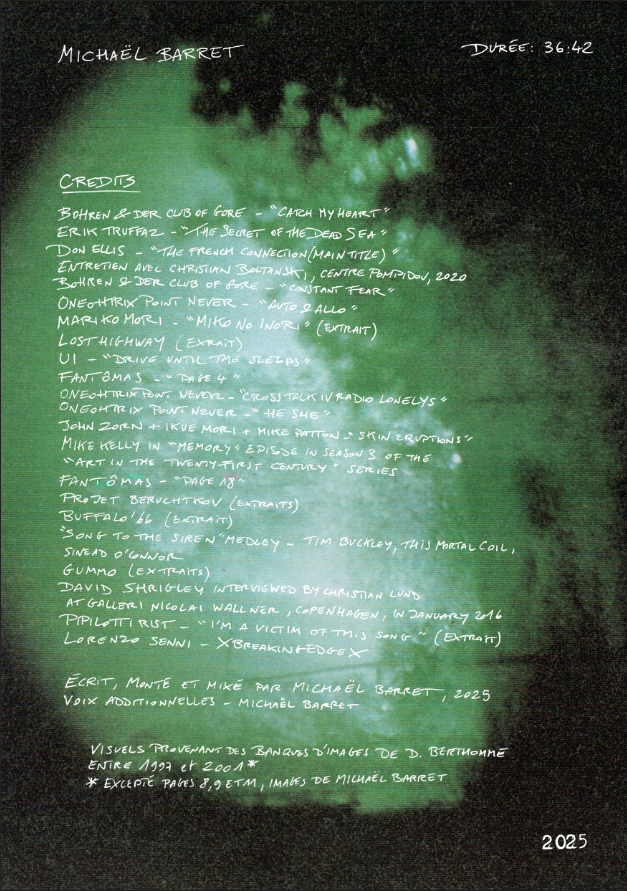 MICHAËL BARRET
DURÉE: 36:42
CREDITS
BOHREN & DER CLUB OF GORE - "CATCH MY HEART"
ERIK TRUFFAZ - "THE SECRET OF THE DEAD SEA"
DON ELLIS - "THE FRENCH CONNECTION (MAIN TITLE)"
ENTRETIEN AVEC CHRISTIAN BOLTANSKI, CENTRE POMPIDOU, 2020
BOHREN & DER CLUB OF GORE - "CONSTANT FEAR"
ONEOHTRIX POINT NEVER - "AUTO & ALLO"
MARIKO MORI - "MIKO NO INORI" (EXTRAIT)
LOST HIGHWAY (EXRAIT)
UI - "DRIVE UNTIL THE SLEEPS"
FANTÔMAS - "PAGE 4"
ONEOHTRIX POINT NEVER - "CROSS TALK IV RADIO LONELYS"
ONEOHTRIX POINT NEVER - "HE SHE"
JOHN ZORN + IKUE MORI + MIKE PATTEN - "SKIN ERUPTIONS"
MIKE KELLY IN "MEMORY" EPISODE IN SEASON 3 OF THE
"ART IN THE TWENTY-FIRST CENTURY" SERIES
FANTÔMAS - "PAGE 18"
PROJET BERUCHTKOV (EXTRAITS)
BUFFALO'66 (EXTRAIT)
"SONG TO THE SIREN" MEDLEY - TIM BUCKLEY, THIS MORTAL COIL,
SINEAD O'CONNOR
GUMMO (EXTRAITS)
DAVID SHRIGLEY INTERVIEWED BY CHRISTIAN LUND
AT GALLERI NICOLAI WALLNER, COPENHAGEN, IN JANUARY 2016
PIPILOTTI RIST - "I'M A VICTIM OF THIS SONG" (EXTRAIT)
LORENZO SENNI - XBREAKINGEDGEX
ÉCRIT, MONTÉ ET MIXÉ PAR MICHAËL BARRET, 2025
VOIX ADDITIONNELLES - MICHAËL BARRET
VISUELS PROVENANT DES BANQUES D'IMAGES DE D. BERTHOMMÉ
ENTRE 1997 et 2001*
* EXCEPTÉ PAGES 8, 9 ET 11, IMAGES DE MICHAËL BARRET
2025